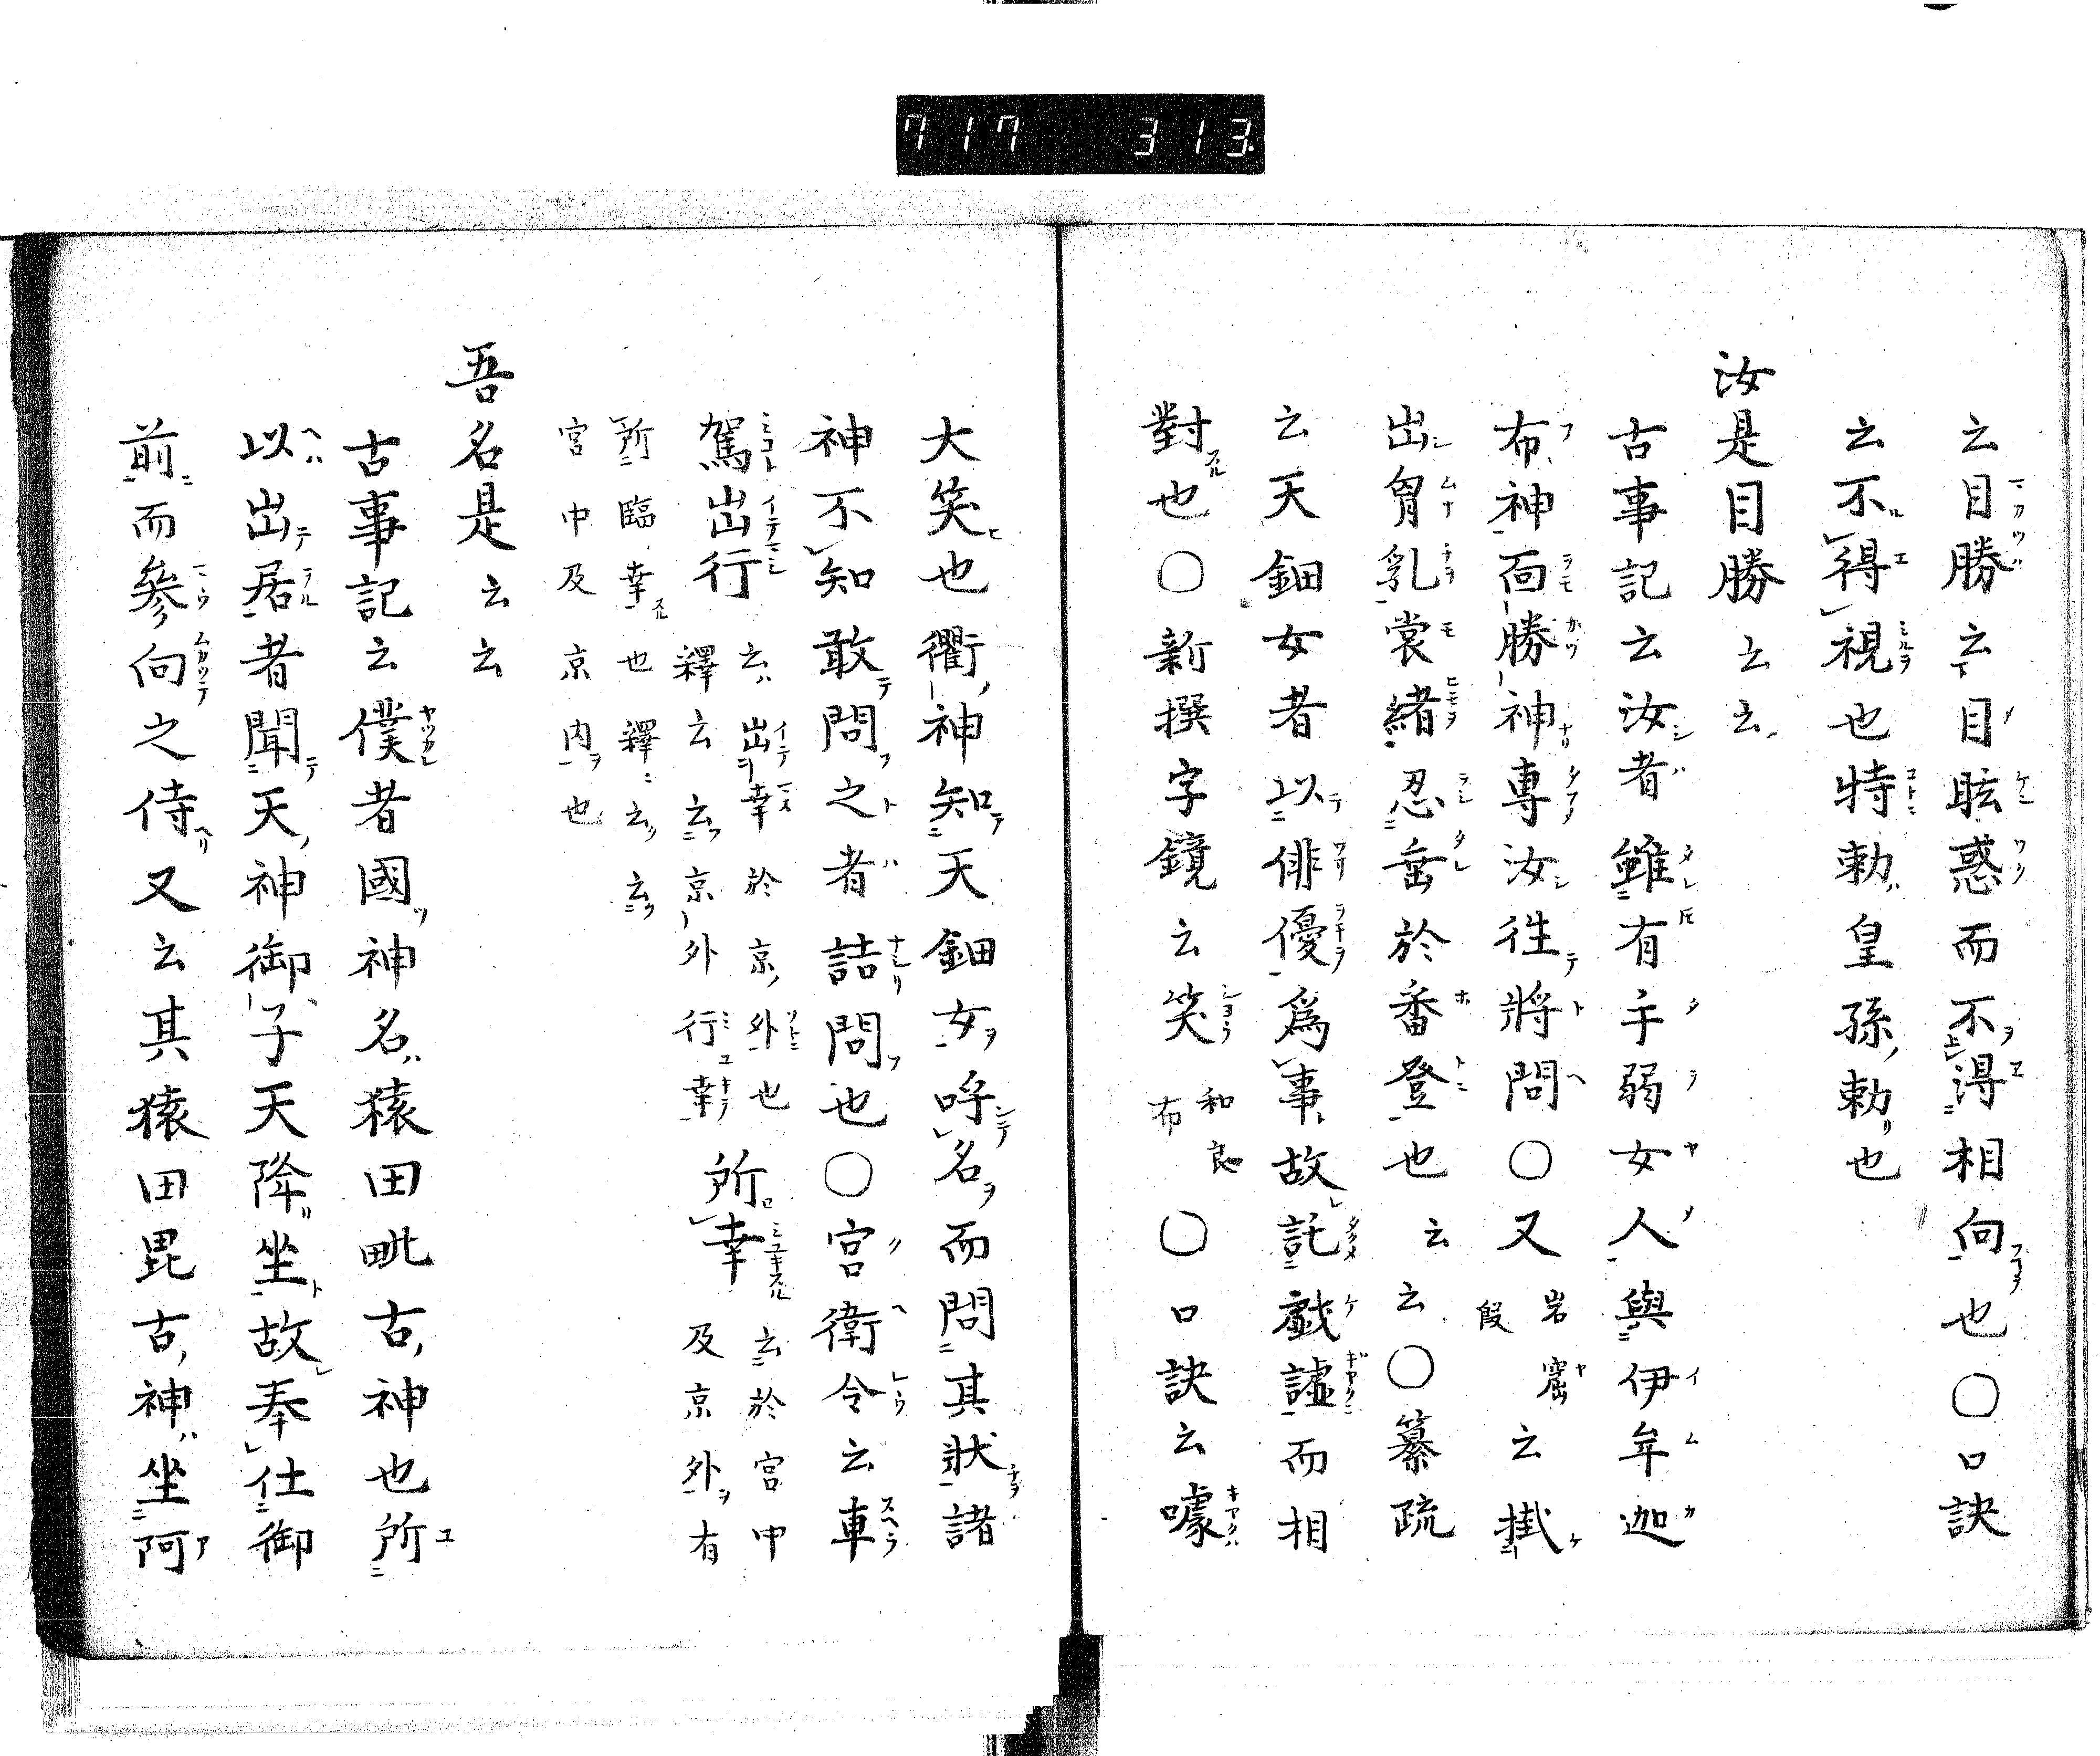 717 313
云目勝云目眩惑而不得相向也○口訣
云不得視也特勅皇孫勅也
汝是目勝云云
古事記云汝者雖有手弱女人與伊牟迦
布神面勝神專汝往將問○又岩窟段云掛
出胷乳裳緒忍垂於番登也云云○纂疏
云天鈿女者以俳優爲事故託戯謔而相
對也○新撰字鏡云笑和良布○口訣云噱
大笑也衢神知天鈿女呼名而問其狀諸
神不知敢問之者詰問也○宮衛令云車
駕出行釋云云京外行幸云出幸於京外也所幸云於宮中及京外有
所臨幸也釋云云
宮中及京内也
吾名是云云
古事記云僕者國神名猿田毗古神也所
以出居者聞天神御子天降坐故奉仕御
前而參向之侍又云其猿田毘古神坐阿